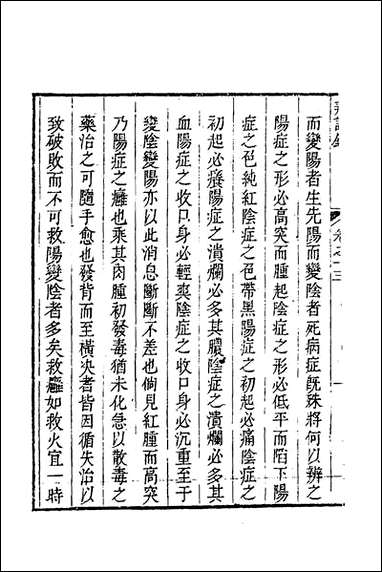 而變陽者生先陽而變陰者死病症旣殊將何以辨之
陽症之形必高突而腫起陰症之形必低平而陷下陽
症之色純紅陰症之色帶黑陽症之初起必痛陰症之
初起必癢陽症之潰爛必多其膿陰症之潰爛必多其
血陽症之收口身必輕爽陰症之收口身必沉重至于
變陰變陽亦以此消息斷斷不差也倘見紅腫而高突
乃陽症之癰也乘其肉腫初發毒猶未化急以散毒之
藥治之可隨手愈也發背而至橫决者皆因循失治以
致破敗而不可救陽變陰者多矣救癰如救火宜一時
卷之十三